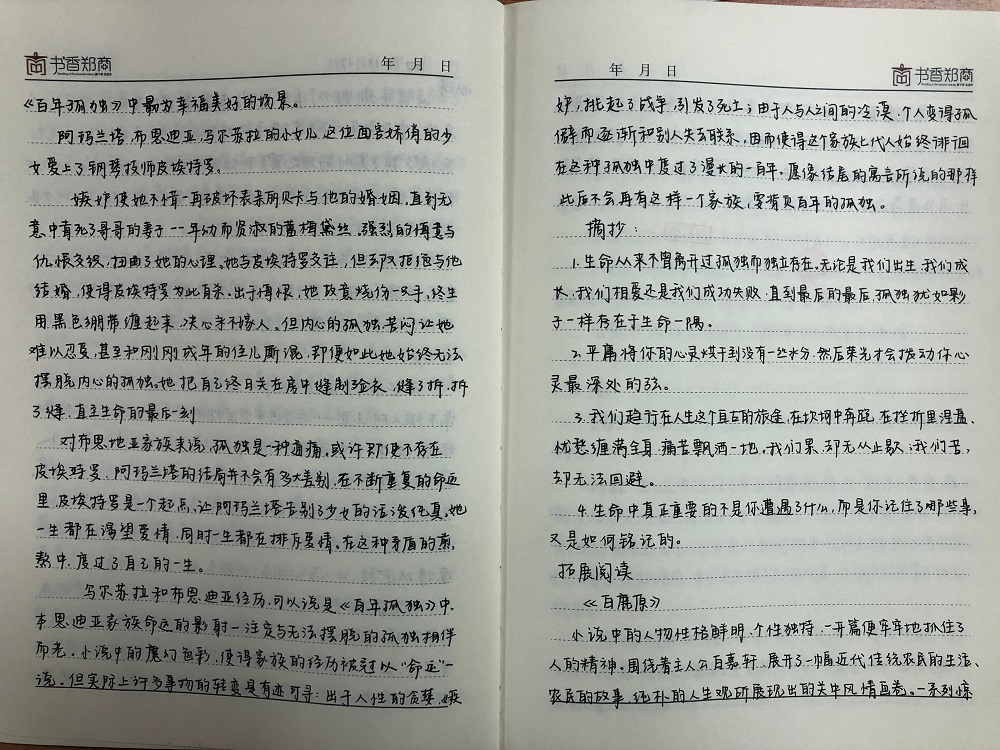 书香郑商
年 月 日
《百年孤独》中最为幸福美好的场景。
阿玛兰塔.布恩迪亚,乌尔苏拉的小女儿,这位面容娇俏的少
女爱上了钢琴技师皮埃特罗。
嫉妒使她不惜一再破坏表亲丽贝卡与他的婚姻,直到无
意中害死了哥哥的妻子一一年幼而贤淑的蕾梅黛丝。强烈的情意与
仇恨交织,扭曲了她的心理。她与皮埃特罗交往,但却又拒绝与他
结婚,使得皮埃特罗为此自杀。出于悔恨,她故意烧伤一只手,终生
用黑色绷带缠起来,决心永不嫁人。但内心的孤独、苦闷让她
难以忍受,甚至和刚刚成年的侄儿厮混,即便如此她始终无法
摆脱内心的孤独。她把自己终日关在房中缝制殓衣,缝了拆,拆
了缝,直至生命的最后一刻
对布恩地亚家族来说,孤独是一种通病,或许即便不存在
皮埃特罗,阿玛兰塔的结局并不会有多大差别,在不断重复的命运
里,皮埃特罗是一个起点,让阿玛兰塔告别了少女的活泼纯真。她
一生都在渴望爱情,同时一生都在排斥爱情。在这种矛盾的煎
熬中,度过了自己的一生。
乌尔苏拉和布恩迪亚经历,可以说是《百年孤独》中,
本恩迪亚家族命运的影射一注定与无法摆脱的孤独相伴
而老。小说中的魔幻色彩,使得家族的经历被冠以“命运”一
说。但实际上许多事物的转变是有迹可寻:出于人性的贪婪、嫉
年 月 日
书香郑商
妒,挑起了战争,引发了死亡;由于人与人之间的冷漠,个人变得孤
僻而逐渐和别人失去联系,因而使得这个家族七代人始终徘徊
在这种孤独中度过了漫长的一百年。愿像结尾的寓言所说的那样
此后不会再有这样一个家族,要背负百年的孤独。
摘抄:
1.生命从来不曾离开过孤独而独立存在。无论是我们出生、我们成
长、我们相爱还是我们成功失败,直到最后的最后,孤独犹如影
子一样存在于生命一隅。
2.平庸将你的心灵烘干到没有一丝水分,然后荣光才会拨动你心
灵最深处的弦。
3.我们趋行在人生这个亘古的旅途,在坎坷中奔跑,在挫折里涅槃,
忧愁缠满全身,痛苦飘洒一地。我们累,却无从止歇;我们苦,
却无法回避。
4.生命中真正重要的不是你遭遇了什么,而是你记住了哪些事,
又是如何铭记的。
拓展阅读
《白鹿原》
小说中的人物性格鲜明,个性独特,一开篇便牢牢地抓住了
人的精神。围绕着主人公白嘉轩,展开了一幅近代传统农民的生活、
农民的故事,纯朴的人生观所展现出的关中风情画卷。一系列惊